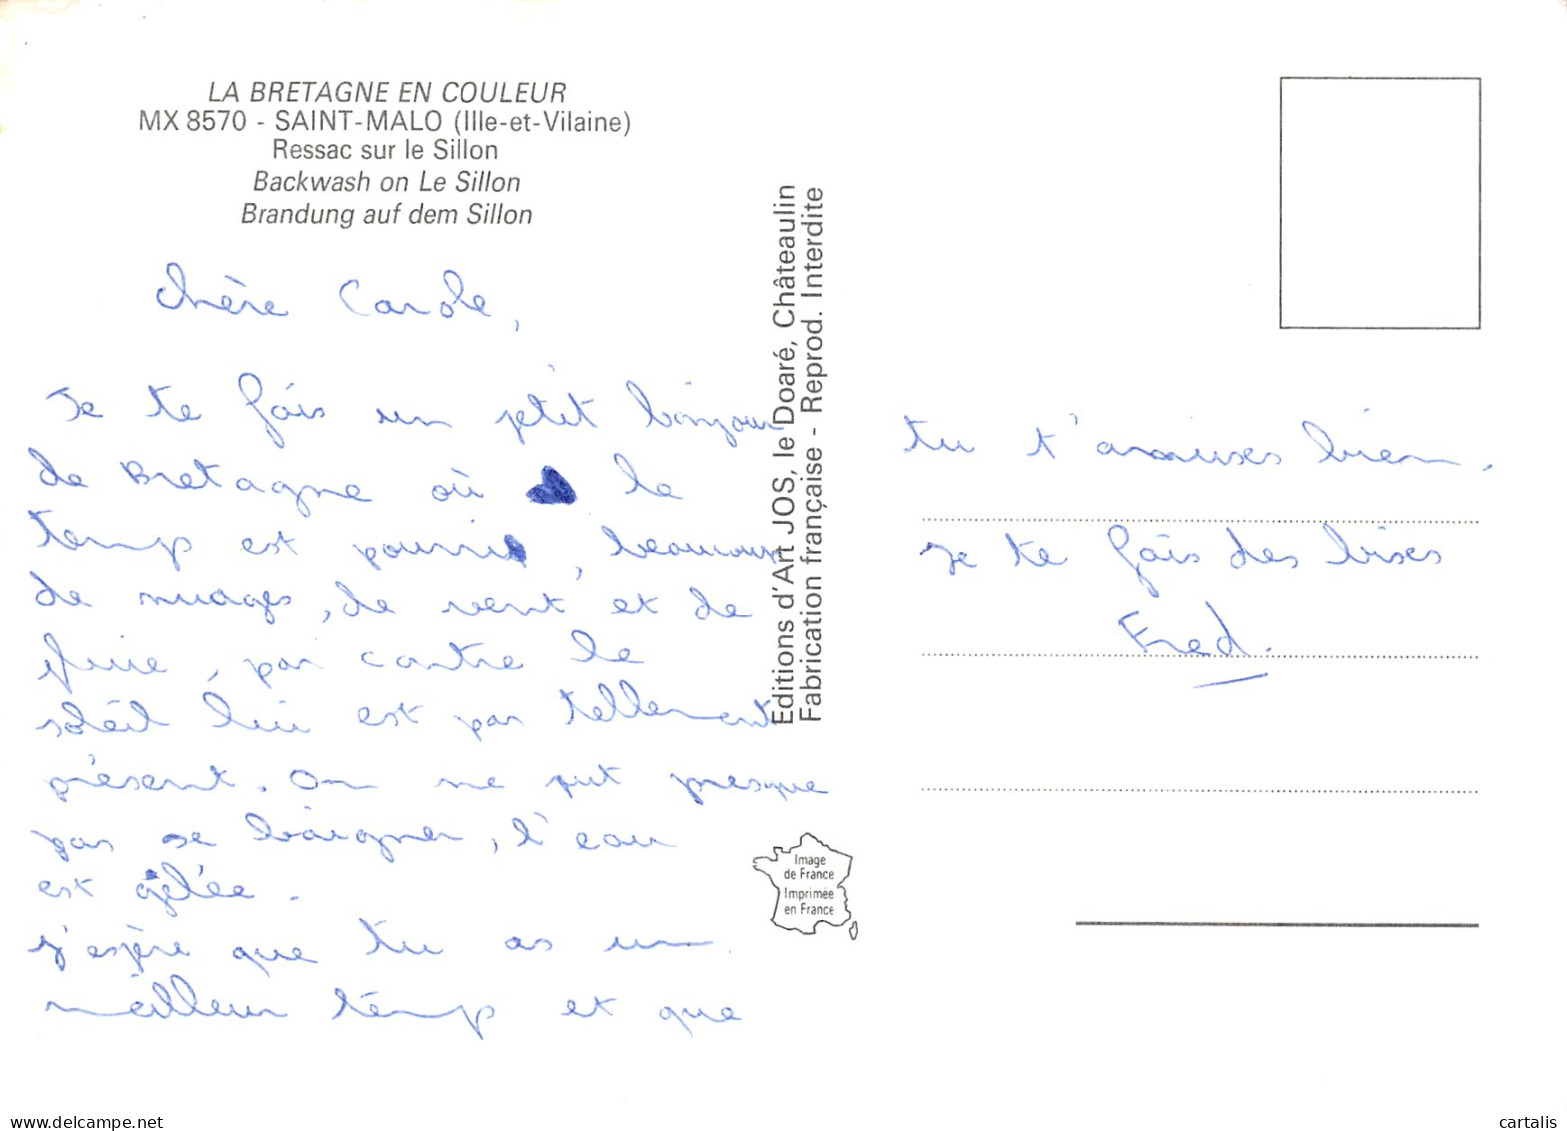 LA BRETAGNE EN COULEUR
MX 8570 - SAINT-MALO (Ille-et-Vilaine)
Ressac sur le Sillon
Backwash on Le Sillon
Brandung auf dem Sillon
Chère Carole,
Je te fais un p'tit bonjour
de Bretagne où le
temp est pourri, beaucoup
de nuages, de vent et de
pluie, par contre le
soleil lui est pas tellement
présent. On ne put presque
pas se baigner, l'eau
est gelée.
J'espère que tu as un
meilleur temp et que
Editions d'Art JOS, le Doaré, Châteaulin
Fabrication française - Reprod. Interdite
Image
de France
Imprimée
en France
tu t'amuses bien.
Je te fais des bises
Fred.
delcampe.net
cartalis